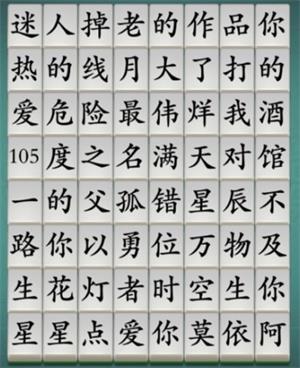 迷人掉老的作品你
热的线月大了打的
爱危险最伟烊我酒
105度之名满天对馆
一的父孤错星辰不
路你以勇位万物及
生花灯者时空生你
星星点爱你莫依阿